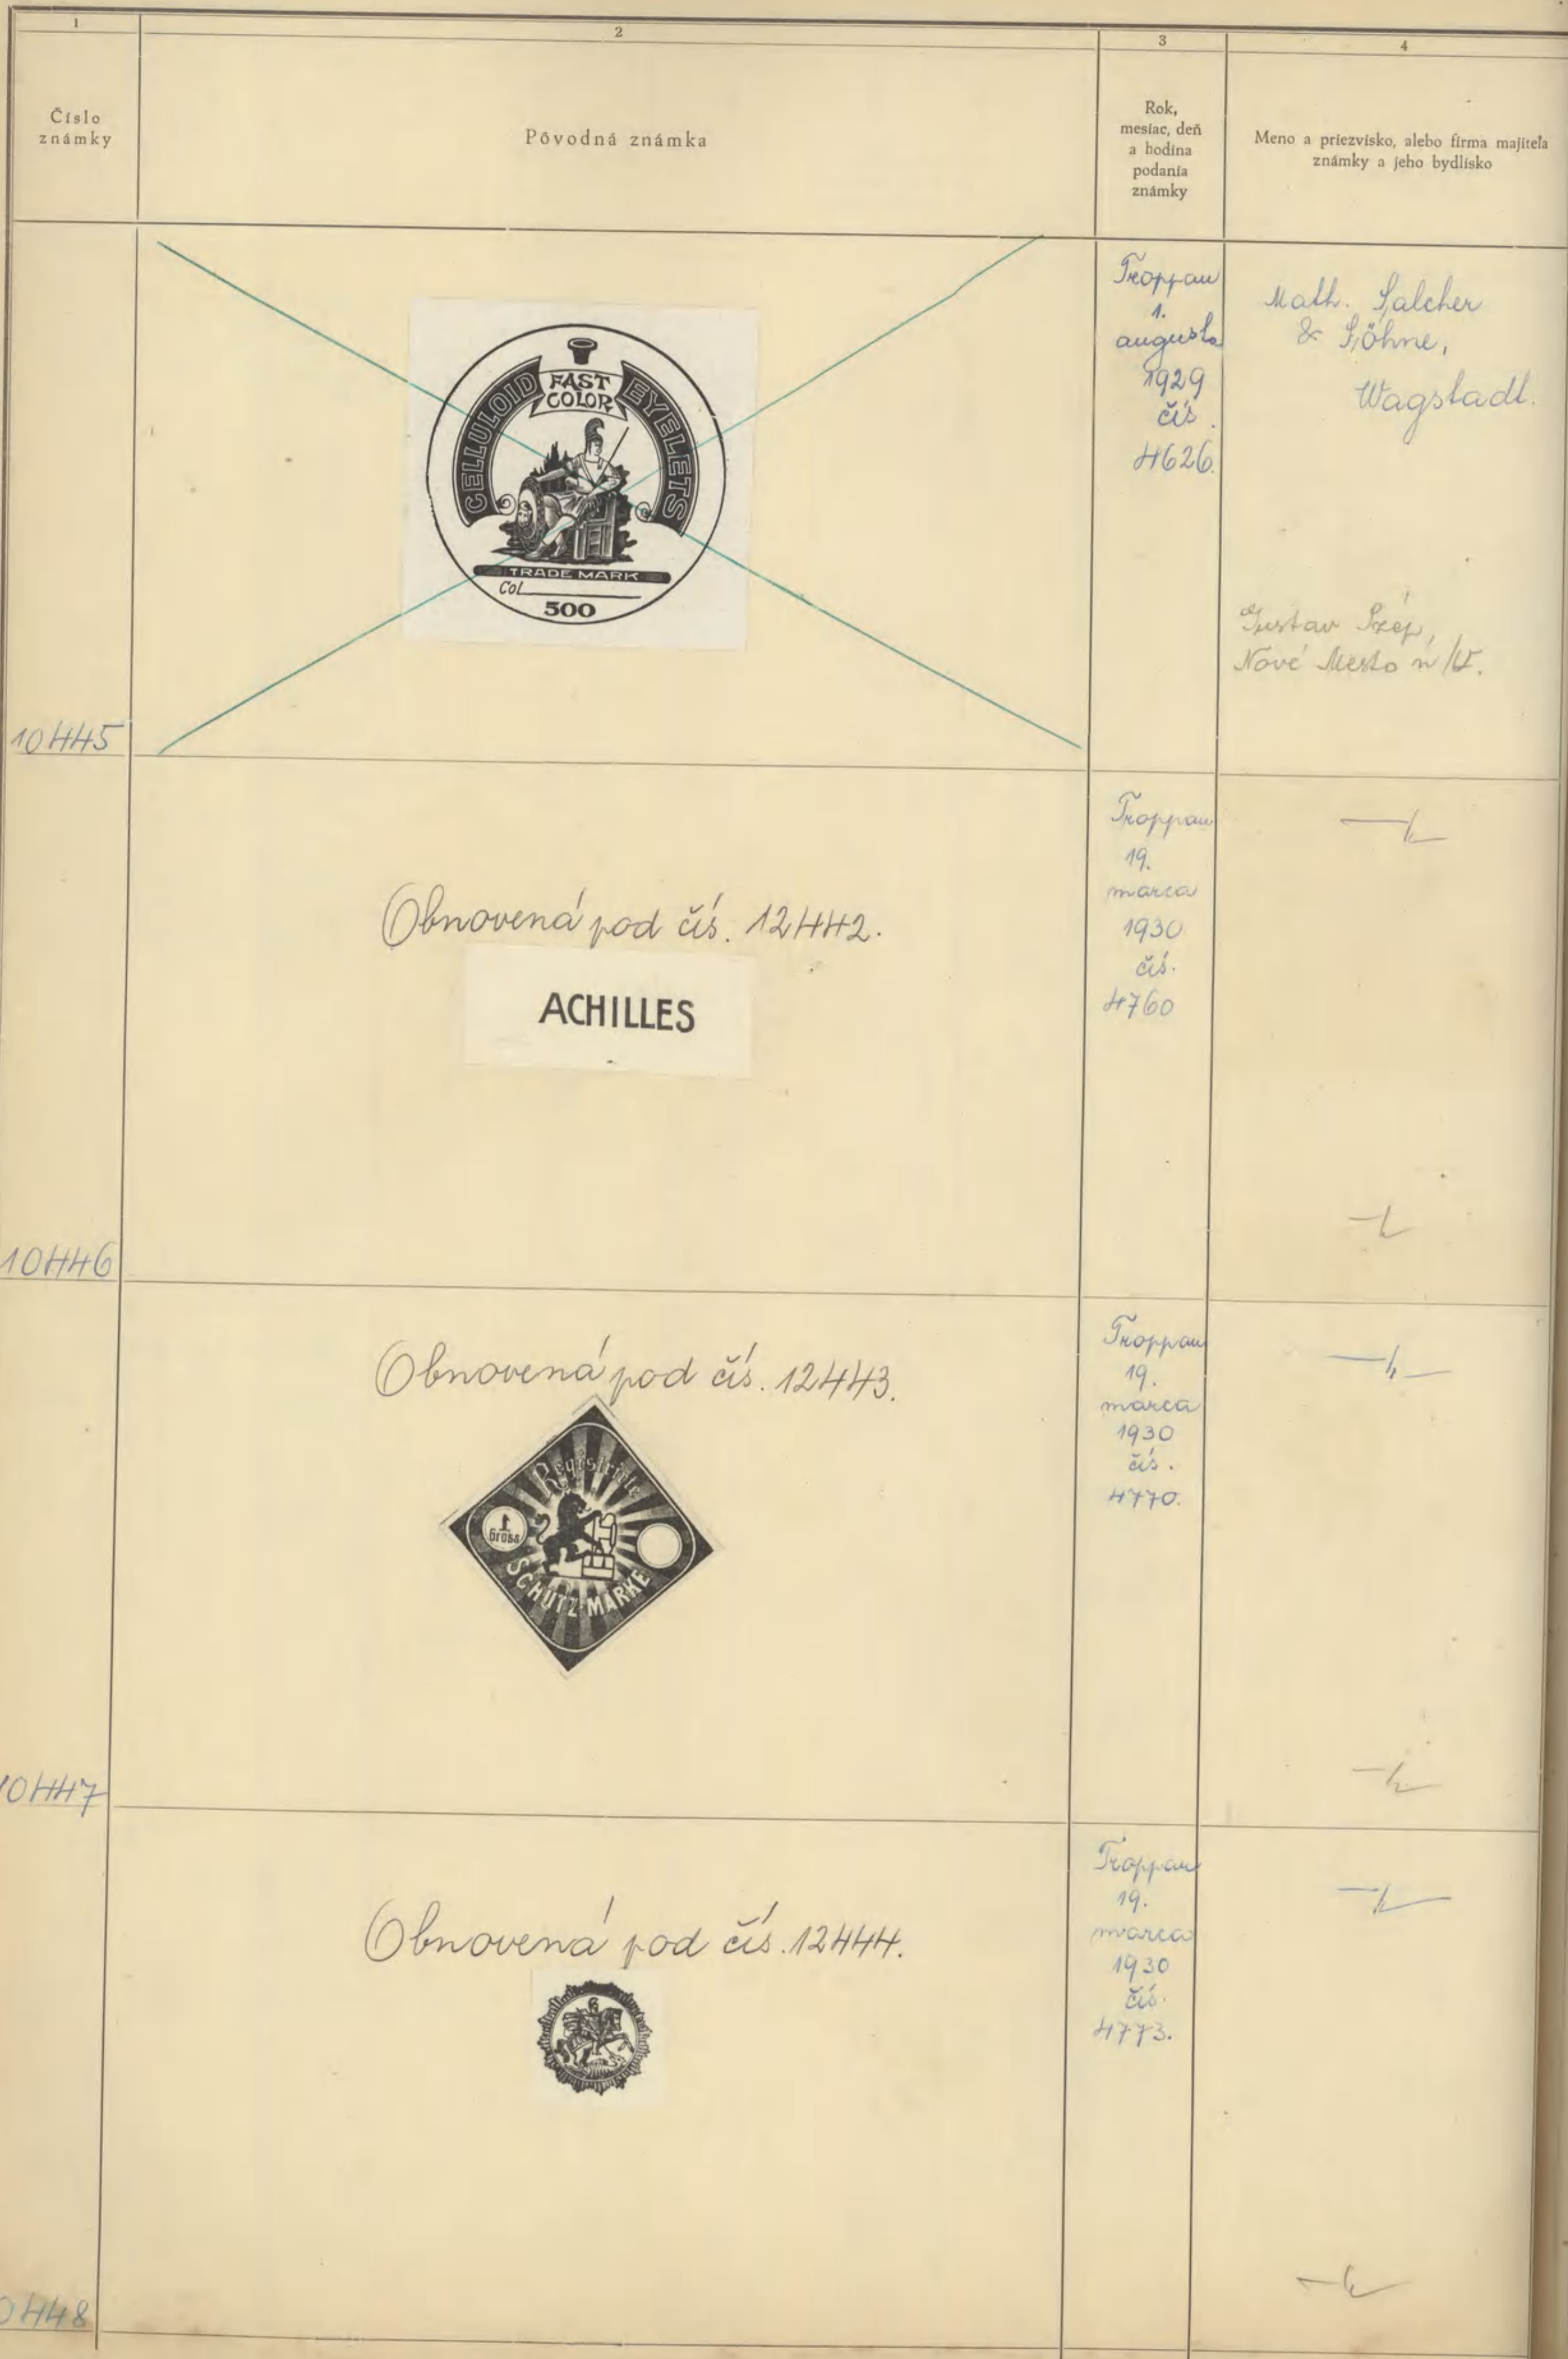 1
2
3
4
Číslo
známky
Pôvodná známka
Rok,
mesiac, deň
a hodina
podania
známky
Meno a priezvisko, alebo firma majiteľa
známky a jeho bydlisko
10445
CELLULOID EYELETS
FAST
COLOR
TRADE MARK
Col
500
Troppau
1.
augusta
1929
čís.
4626.
Math. Salcher
& Söhne,
Wagstadt.
Gustav Szép,
Nové Mesto n/V.
10446
Obnovená pod čís. 12442.
ACHILLES
Troppau
19.
marca
1930
čís.
4760
10447
Obnovená pod čís. 12443.
Registrirte
1
Gross
SCHUTZ-MARKE
Troppau
19.
marca
1930
čís.
4770.
0448
Obnovená pod čís. 12444.
Troppau
19.
marca
1930
čís.
4773.